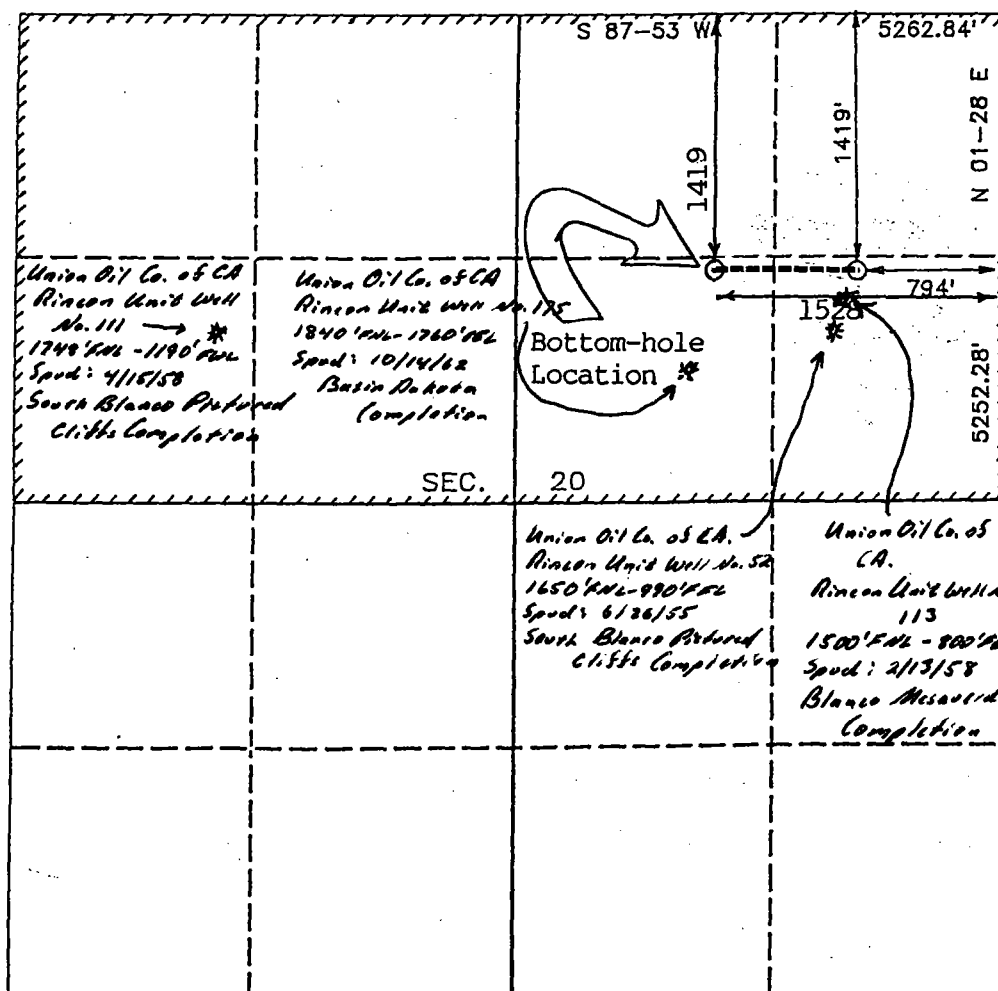 S 87-53 W
5262.84'
N 01-28 E
1419
1419'
794'
1528
5252.28'
Union Oil Co. of CA
Rincon Unit Well
No. 111
1749' FNL - 1190' FWL
Spud: 4/15/58
South Blanco Pictured
Cliffs Completion
Union Oil Co. of CA
Rincon Unit Well No. 175
1840' FNL - 1760' FEL
Spud: 10/14/62
Basin Dakota
Completion
Bottom-hole
Location
SEC. 20
Union Oil Co. of CA.
Rincon Unit Well No. 52
1650' FNL - 990' FEL
Spud: 6/26/55
South Blanco Pictured
Cliffs Completion
Union Oil Co. of
CA.
Rincon Unit Well
113
1500' FNL - 800'
Spud: 2/13/58
Blanco
Completion